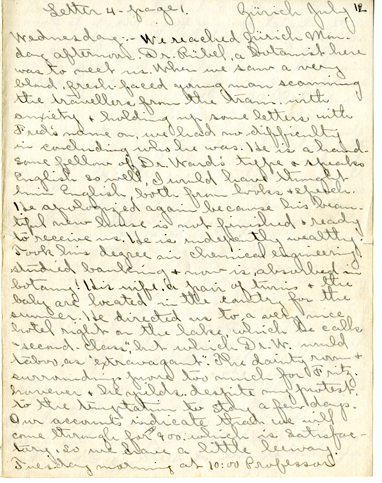 Letter 4 - page 1. Zürich July 12
Wednesday:- We reached Zürich Mon-
day afternoon. Dr. Rübel, a botanist here
was to meet us. When we saw a very
blond, fresh-faced young man scanning
the travellers from the train with
anxiety & holding up some letters with
Fred's name on, we had no difficulty
in concluding who he was. He is a hand-
some fellow of Dr. Ward's type & speaks
English so well, I would have thought
him English, both from looks & speech.
He apologized again because his beau-
tiful new house is not finished & ready
to receive us. He is independently wealthy.
Took his degree in chemical engineering,
studied banking & now is absorbed in
botany! His wife, a pair of twins & the
baby are located in the country for the
summer. He directed us to a very nice
hotel right on the lake, which he calls
"second class", but which Dr. W. would
taboo as "extravagant". The dainty room &
surroundings were too much for Fritz,
however & he yields, despite my protest
to the temptation to stay a few days.
Our accounts indicate that we will
come through for 900. which is satisfac-
tory, so we have a little leeway.
Tuesday morning at 10:00 Professor